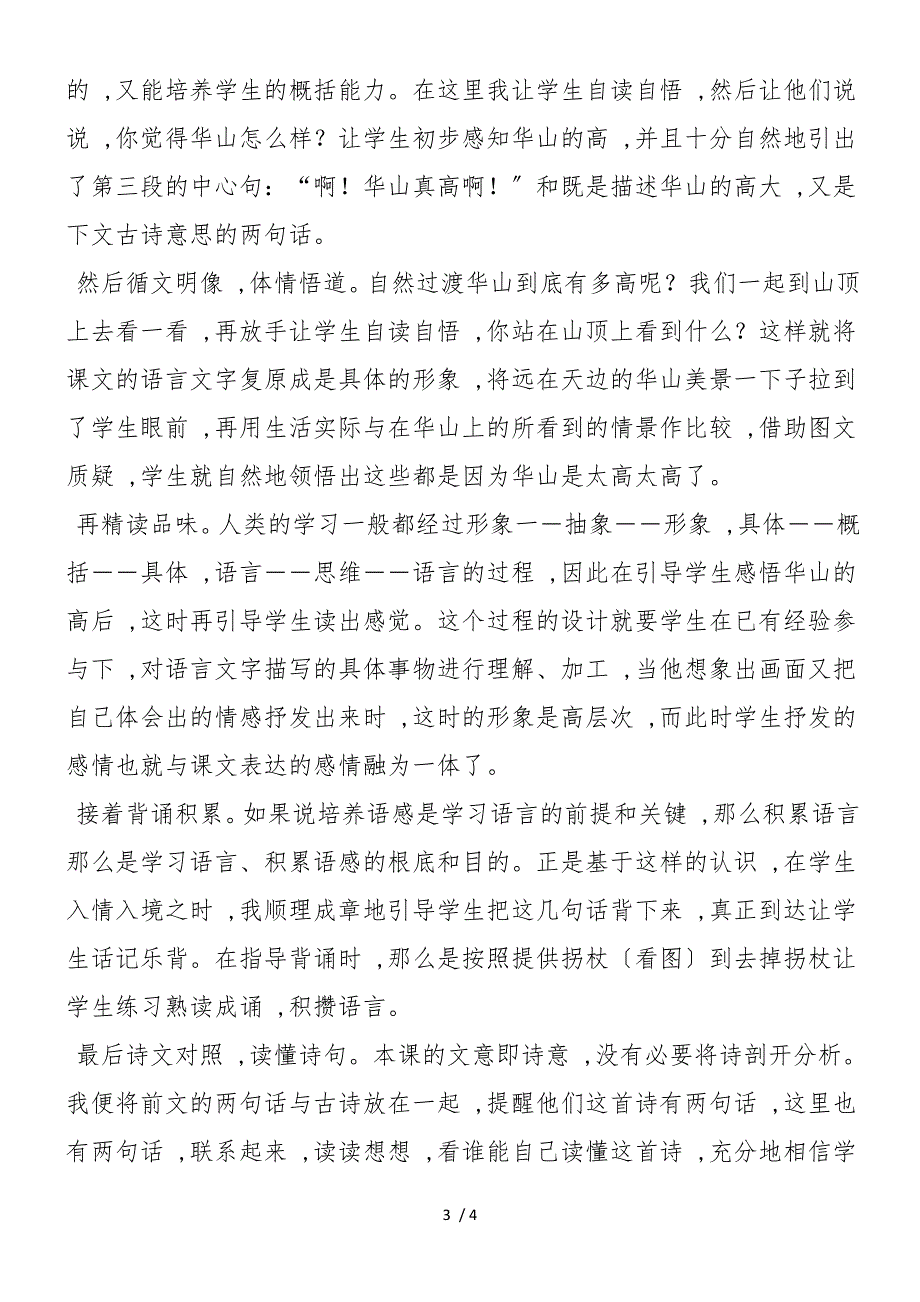 的 ,又能培养学生的概括能力。在这里我让学生自读自悟 ,然后让他们说
说 ,你觉得华山怎么样？让学生初步感知华山的高 ,并且十分自然地引出
了第三段的中心句：“啊！华山真高啊！〞和既是描述华山的高大 ,又是
下文古诗意思的两句话。
然后循文明像 ,体情悟道。自然过渡华山到底有多高呢？我们一起到山顶
上去看一看 ,再放手让学生自读自悟 ,你站在山顶上看到什么？这样就将
课文的语言文字复原成是具体的形象 ,将远在天边的华山美景一下子拉到
了学生眼前 ,再用生活实际与在华山上的所看到的情景作比较 ,借助图文
质疑 ,学生就自然地领悟出这些都是因为华山是太高太高了。
再精读品味。人类的学习一般都经过形象一－抽象－－形象 ,具体－－概
括－－具体 ,语言－－思维－－语言的过程 ,因此在引导学生感悟华山的
高后 ,这时再引导学生读出感觉。这个过程的设计就要学生在已有经验参
与下 ,对语言文字描写的具体事物进行理解、加工 ,当他想象出画面又把
自己体会出的情感抒发出来时 ,这时的形象是高层次 ,而此时学生抒发的
感情也就与课文表达的感情融为一体了。
接着背诵积累。如果说培养语感是学习语言的前提和关键 ,那么积累语言
那么是学习语言、积累语感的根底和目的。正是基于这样的认识 ,在学生
入情入境之时 ,我顺理成章地引导学生把这几句话背下来 ,真正到达让学
生话记乐背。在指导背诵时 ,那么是按照提供拐杖〔看图〕到去掉拐杖让
学生练习熟读成诵 ,积攒语言。
最后诗文对照 ,读懂诗句。本课的文意即诗意 ,没有必要将诗剖开分析。
我便将前文的两句话与古诗放在一起 ,提醒他们这首诗有两句话 ,这里也
有两句话 ,联系起来 ,读读想想 ,看谁能自己读懂这首诗 ,充分地相信学
3 / 4